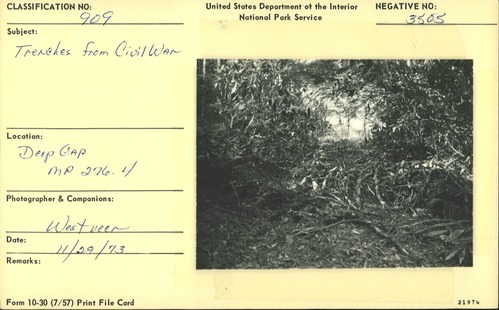 CLASSIFICATION NO:
909
United States Department of the Interior
National Park Service
NEGATIVE NO:
3505
Subject:
Trenches from Civil War
Location:
Deep Gap
MP 276.4
Photographer & Companions:
Westveer
Date:
11/29/73
Remarks:
Form 10-30 (7/57) Print File Card
21974